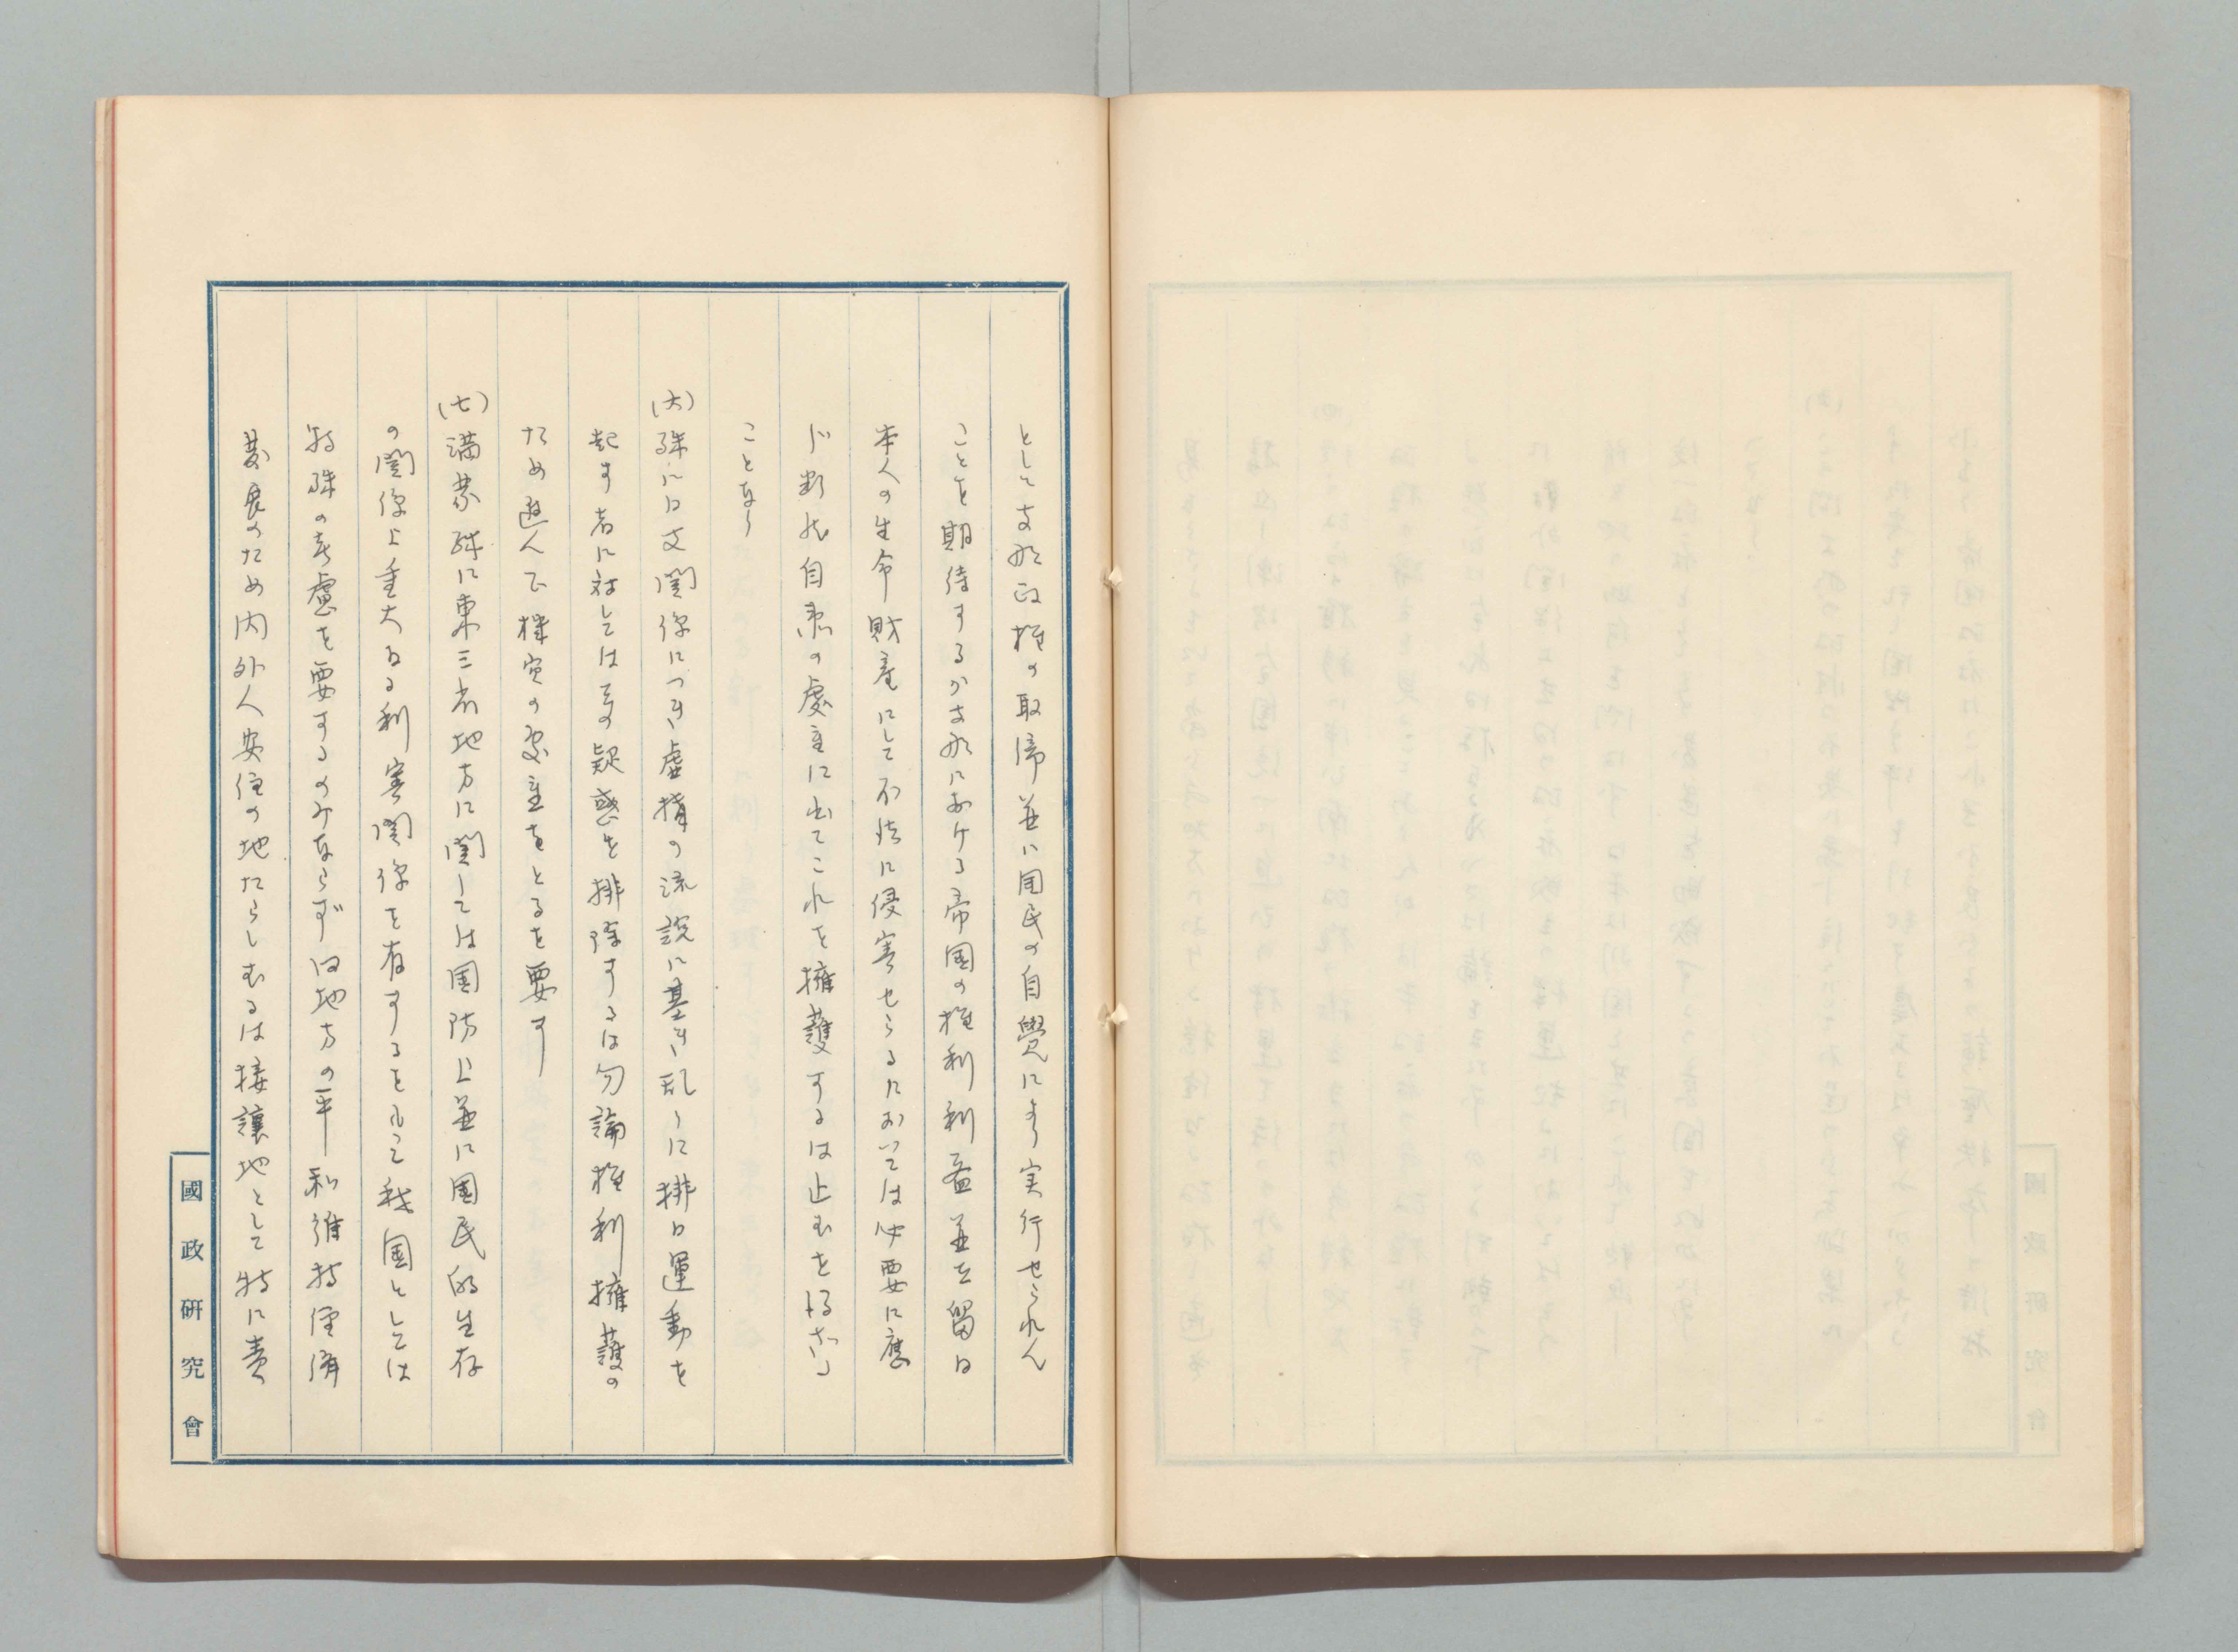 として支那政権の取締並に国民の自覺により実行せられん
ことを期待するが支那における帝国の権利利益並在留日
本人の生命財産にして不法に侵害せらるにおいては必要に應
じ断然自衛の處置に出てこれを擁護するは止むを得ざる
ことなり
(六)殊に日支関係につき虚構の流説に基き乱りに排日運動を
起す者に対しては其の疑惑を排除するは勿論権利擁護の
ため進んで機宜の処置をとるを要す
(七)満蒙殊に東三省地方に関しては国防上並に国民的生存
の関係上重大なる利害関係を有するを以て我国としては
特殊の考慮を要するのみならず同地方の平和維持経済
發展のため内外人安住の地たらしむるは接讓地として特に責
國政研究會